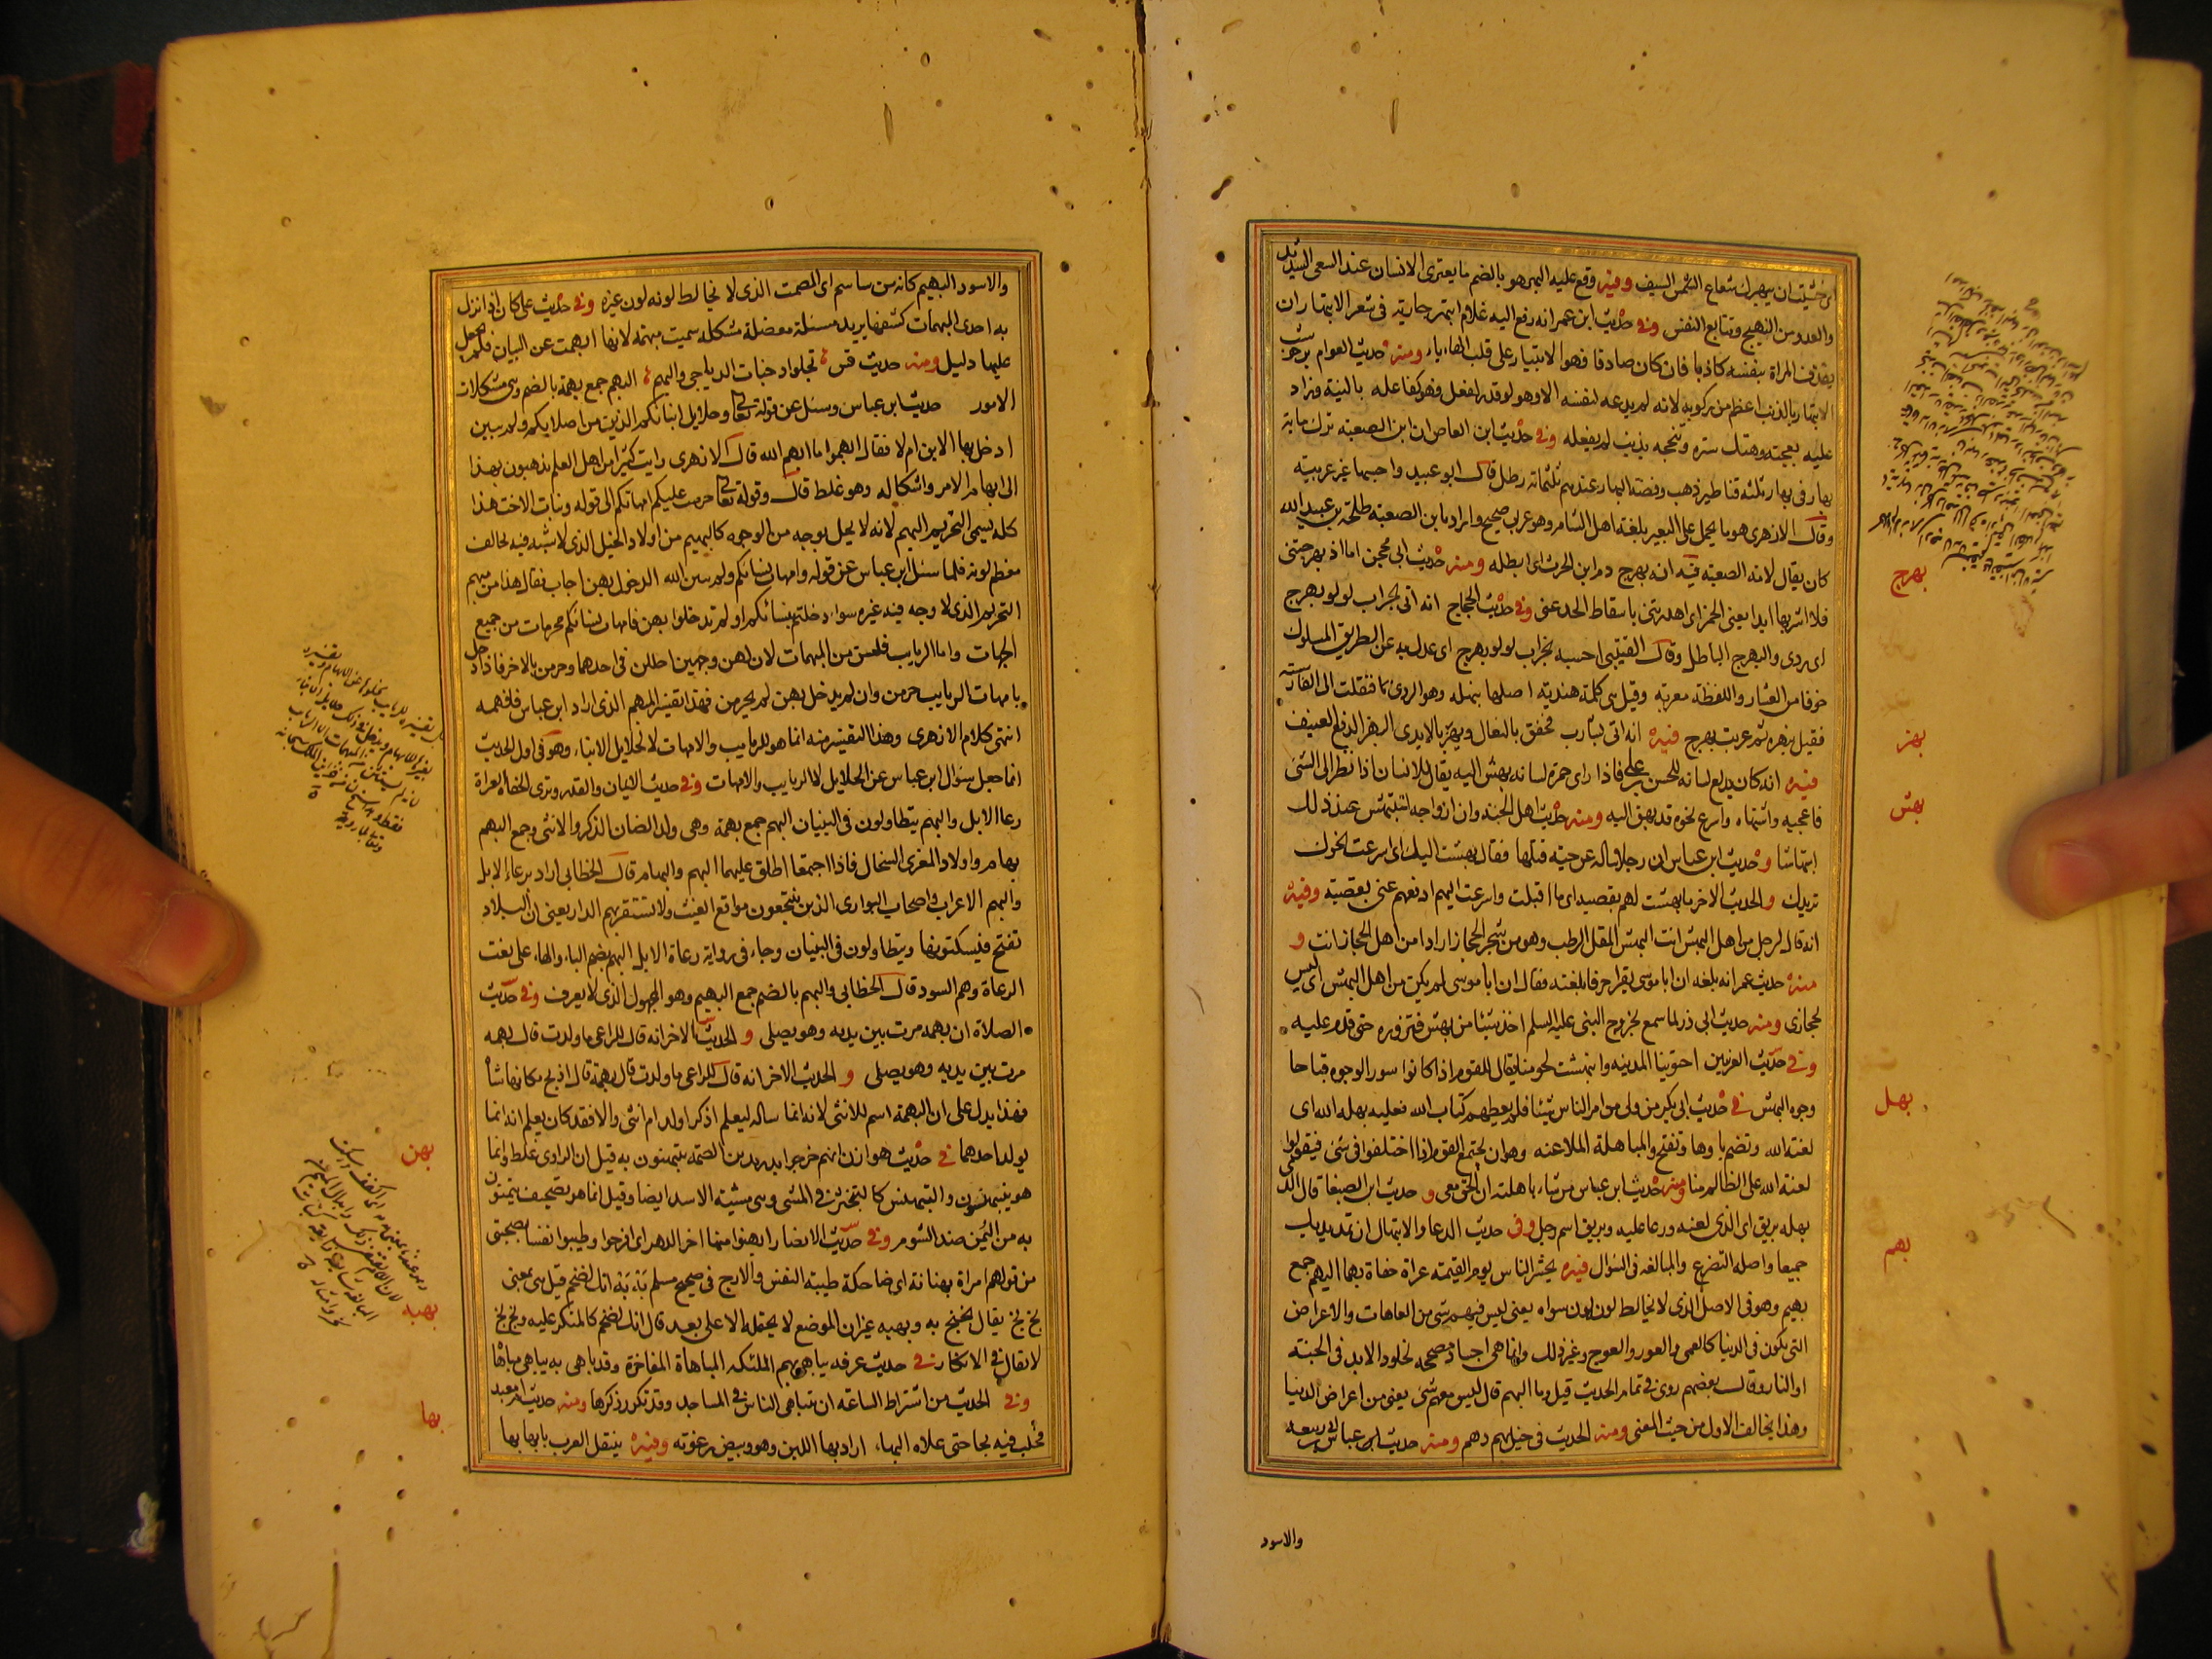 اى خشيت ان يبهرك شعاع الشمس السيف وفيه وقع عليه البهر هو بالضم ما يعترى الانسان عند السعى الشديد
والعدو من النهيج وتتابع النفس وفى حديث ابن عمر انه رفع اليه غلام ابتهر جارية فى شعر الابتهار ان
يقذف المراة بنفسه كاذبا فان كان صادقا فهو الابتيار على قلب الهاء ياء ومنه حديث العوام بن حوشب
الابتهار بالذنب اعظم من ركوبه لانه لم يدعه لنفسه الا وهو لو قدر لفعل فهو كفاعله بالنية وزاد
عليه بمعجته وهتك ستره وتبجحه بذنب لم يفعله وفى حديث ابن العاص ان ابن الصعبة ترك ماية
بهار فى بهار ثلثة قناطير ذهب وفضة البهار عندهم ثلثمائة رطل قال ابو عبيد واحسبها غير عربية
وقال الازهرى هو ما يحمل على البعير بلغة اهل الشام وهو عربى صحيح واراد بابن الصعبة طلحة بن عبيد الله
كان يقال لامه الصعبة فيه انه بهرج دم ابن الحرث اى ابطله ومنه حديث ابى محجن اما اذ بهرجتنى
فلا اشربها ابدا يعنى الخمر اى اهدرتنى باسقاط الحد عنى وفى حديث الحجاج انه اتى بجراب لولو بهرج
اى ردى والبهرج الباطل وقال القتيبى احسبه بجراب لولو بهرج اى عدل به عن الطريق المسلوك
خوفا من العشار واللفظة معربة وقيل هى كلمة هندية اصلها بنهله وهو الردى فنقلت الى الفارسية
فقيل نبهره ثم عربت بهرج فيه انه اتى بشارب فخفق بالنعال وبهز بالايدى البهز الدفع العنيف
فيه انه كان يدلع لسانه للحسن بن على فاذا راى حمرة لسانه بهش اليه يقال للانسان اذا نظر الى الشئ
فاعجبه واشتهاه واسرع نحوه قد بهش اليه ومنه حديث اهل الجنة وان ازواجه لتبتهش عند ذلك
ابتهاشا وحديث ابن عباس ان رجلا ساله عن حية قتلها فقال بهشت اليك اى اسرعت نحوك
تريدك والحديث الاخر ما بهشت لهم بقصبة اى ما اقبلت واسرعت اليهم ادفعهم عنى بقصبة وفيه
انه قال لرجل من اهل البهش انت البهش المقل الرطب وهو من شجر الحجاز اراد امن اهل الحجاز انت و
منه حديث عمر انه بلغه ان ابا موسى يقرا حرفا بلغته فقال ان ابا موسى لم يكن من اهل البهش اى ليس
بحجازى ومنه حديث ابى ذر لما سمع بخروج النبى عليه السلم اخذ شيئا من بهش فتزوره حتى قدم عليه
وفى حديث العرنيين اجتوينا المدينة وانبهشت لحومنا يقال للقوم اذا كانوا سود الوجوه قباحا
وجوه البهش فى حديث ابى بكر من ولى من امر الناس شيئا فلم يعطهم كتاب الله فعليه بهلة الله اى
لعنة الله وتضم باوها وتفتح والمباهلة الملاعنة وهو ان يجتمع القوم اذا اختلفوا فى شئ فيقولوا
لعنة الله على الظالم منا ومنه حديث ابن عباس من شاء باهلته ان الحق معى و حديث ابن الصبغا قال الذى
بهله بريق اى الذى لعنه ودعا عليه وبريق اسم رجل وفى حديث الدعا والابتهال ان تمد يديك
جميعا واصله التضرع والمبالغة فى السؤال فيه يحشر الناس يوم القيمة عراة حفاة بهما البهم جمع
بهيم وهو فى الاصل الذى لا يخالط لونه لون سواه يعنى ليس فيهم شئ من العاهات والاعراض
التى تكون فى الدنيا كالعمى والعور والعوج وغير ذلك وانما هى اجساد مصححة لخلود الابد فى الجنة
او النار وقال بعضهم روى فى تمام الحديث قيل وما البهم قال ليس معهم شئ يعنى من اعراض الدنيا
وهذا يخالف الاول من حيث المعنى ومنه الحديث فى خيل بهم دهم ومنه حديث ابن عباس بن ابى ربيعة
بهرج
بهز
بهش
بهل
بهم
والاسود
والاسود البهيم كانه من ساسم اى المصمت الذى لا يخالط لونه لون غيره وفى حديث على كان اذا نزل
به احدى المبهمات كشفها يريد مسئلة معضلة مشكلة سميت مبهمة لانها ابهمت عن البيان فلم يجعل
عليها دليل ومنه حديث قس تجلو دجنات الدياجى والبهم البهم جمع بهمة بالضم وهى مشكلات
الامور حديث ابن عباس وسئل عن قوله تعالى وحلايل ابنائكم الذين من اصلابكم ولم يبين
ادخل بها الابن ام لا فقال ابهموا ما ابهم الله قال الازهرى رايت كثيرا من اهل العلم يذهبون بهذا
الى ابهام الامر واشكاله وهو غلط قال وقوله تعالى حرمت عليكم امهاتكم الى قوله وبنات الاخت هذا
كله يسمى التحريم المبهم لانه لا يحل بوجه من الوجوه كالبهيم من اولاد الخيل الذى لا شية فيه تخالف
معظم لونه فلما سئل ابن عباس عن قوله وامهات نسائكم ولم يبين الله الدخول بهن اجاب فقال هذا من مبهم
التحريم الذى لا وجه فيه غيره سواء دخلتم بنسائكم او لم تدخلوا بهن فامهات نسائكم محرمات من جميع
الجهات واما الربايب فلسن من المبهمات لان لهن وجهين احللن فى احدهما وحرمن بالاخر فاذا دخل
بامهات الربايب حرمن وان لم يدخل بهن لم يحرمن فهذا تفسير المبهم الذى اراد ابن عباس فافهمه
انتهى كلام الازهرى وهذا التفسير منه انما هو للربايب والامهات لا لحلايل الابناء وهو فى اول الحديث
انما جعل سؤال ابن عباس عن الحلايل لا الربايب والامهات وفى حديث الايمان والقدر وترى الحفاة العراة
رعاا الابل والبهم يتطاولون فى البنيان البهم جمع بهمة وهى ولد الضان الذكر والانثى وجمع البهم
بهام واولاد المعزى السخال فاذا اجتمعا اطلق عليهما البهم والبهام قال الخطابى اراد برعاء الابل
والبهم الاعراب واصحاب البوادى الذين ينتجعون مواقع الغيث ولا تستقر بهم الدار يعنى ان البلاد
تفتح فيسكنونها ويتطاولون فى البنيان وجاء فى رواية رعاة الابل البهم بضم الباء والهاء على نعت
الرعاة وهم السود قال الخطابى والبهم بالضم جمع البهيم وهو المجهول الذى لا يعرف وفى حديث
الصلاة ان بهمة مرت بين يديه وهو يصلى و الحديث الاخر انه قال للراعى ما ولدت قال بهمة
مرت بين يديه وهو يصلى و الحديث الاخر انه قال للراعى ما ولدت قال بهمة قال اذبح مكانها شاة
فهذا يدل على ان البهمة اسم للانثى لانه انما ساله ليعلم اذكرا ولد ام انثى والا فقد كان يعلم انه انما
يولد احدهما فى حديث هوازن انهم خرجوا بدريد بن الصمة يتبهنون به قيل ان الراوى غلط وانما
هو يتبهنسون والتبهنس كالتبختر فى المشى وهى مشية الاسد ايضا وقيل انما هو تصحيف يتيمنون
به من اليمن ضد الشوم وفى حديث الانصار ابهنوا منها اخر الدهر اى افرحوا وطيبوا نفسا بصحبتى
من قولهم امراة بهنانة اى ضاحكة طيبة النفس والارج فى صحيح مسلم به به انك لضخم قيل هى بمعنى
بخ بخ يقال بخبخ به وبهبه غير ان الموضع لا يحتمله الا على بعد قال انك لضخم كالمنكر عليه وبخ بخ
لا يقال فى الانكار فى حديث عرفة يباهى بهم الملئكة المباهاة المفاخرة وقد باهى به يباهى مباهاة
وفى الحديث من اشتراط الساعة ان يتباهى الناس فى المساجد وقد تكرر ذكرها ومنه حديث ام معبد
فحلب فيه ثجا حتى علاه البهاء اراد بهاء اللبن وهو وبيض رغوته وفيه ينتقل العرب بابهايها
بهن
بهبه
بها